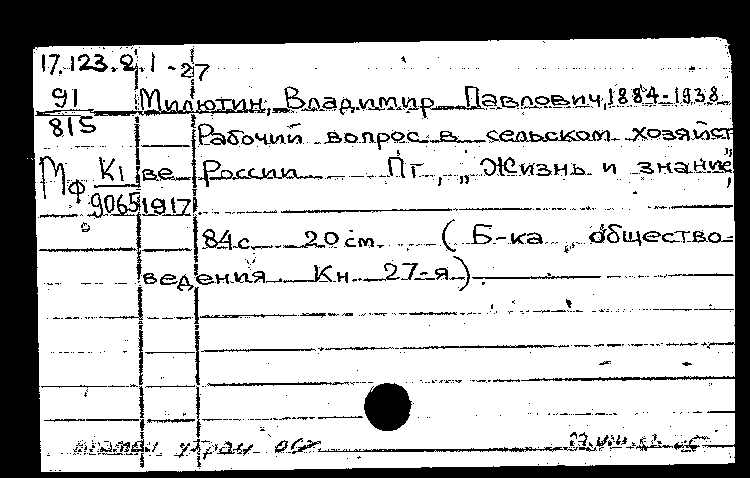 17.123.2.1-27
91 Милютин, Владимир Павлович, 1884-1938
815 Рабочий вопрос в сельском хозяйст
Мф К1 ве России Пг, „Жизнь и знание"
9065 1917
84 с. 20 см. (Б-ка обществo-
ведения. Кн. 27-я).